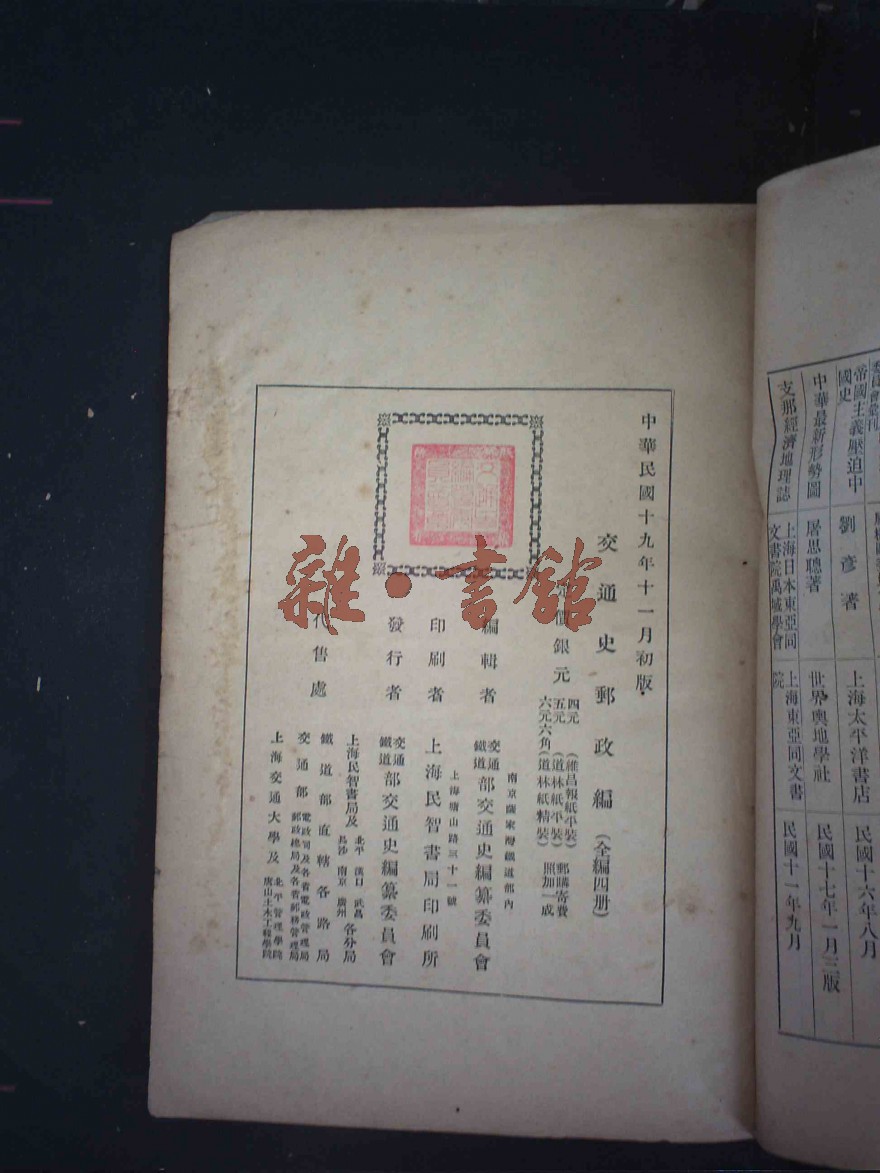 帝國主義壓迫中國史
劉彥著
上海太平洋書店
民國十六年八月
中華最新形勢圖
屠思聰著
世界輿地學社
民國十七年一月三版
支那經濟地理誌
上海日本東亞同文書院禹域學會
上海東亞同文書院
民國十一年九月
中華民國十九年十一月初版
交通史郵政編(全編四册)
價銀元
四元(維昌報紙平裝)
五元(道林紙平裝)
六元六角(道林紙精裝)
郵購寄費
照加一成
編輯者
交通鐵道部交通史編纂委員會
南京薩家灣鐵道部內
印刷者
上海民智書局印刷所
上海塘山路三十一號
發行者
交通鐵道部交通史編纂委員會
代售處
上海民智書局及北平漢口武昌長沙南京廣州各分局
鐵道部直轄各路局
交通部電政司及各省電政管理局郵政總局及各省郵務管理局
上海交通大學及北平管理學院唐山土木工程學院
雜·書館